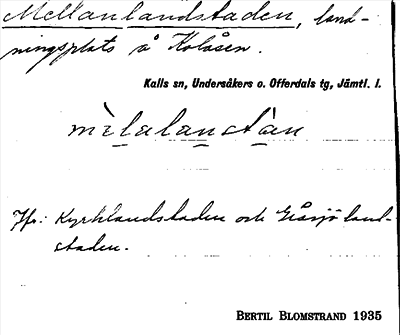 Mellanlandstaden, land-
ningsplats å Kolåsen.
Kalls sn, Undersåkers o. Offerdals tg, Jämtl. l.
mèlalanstàen
Jfr: Kyrklandstaden och Gåsjöland-
staden.
BERTIL BLOMSTRAND 1935